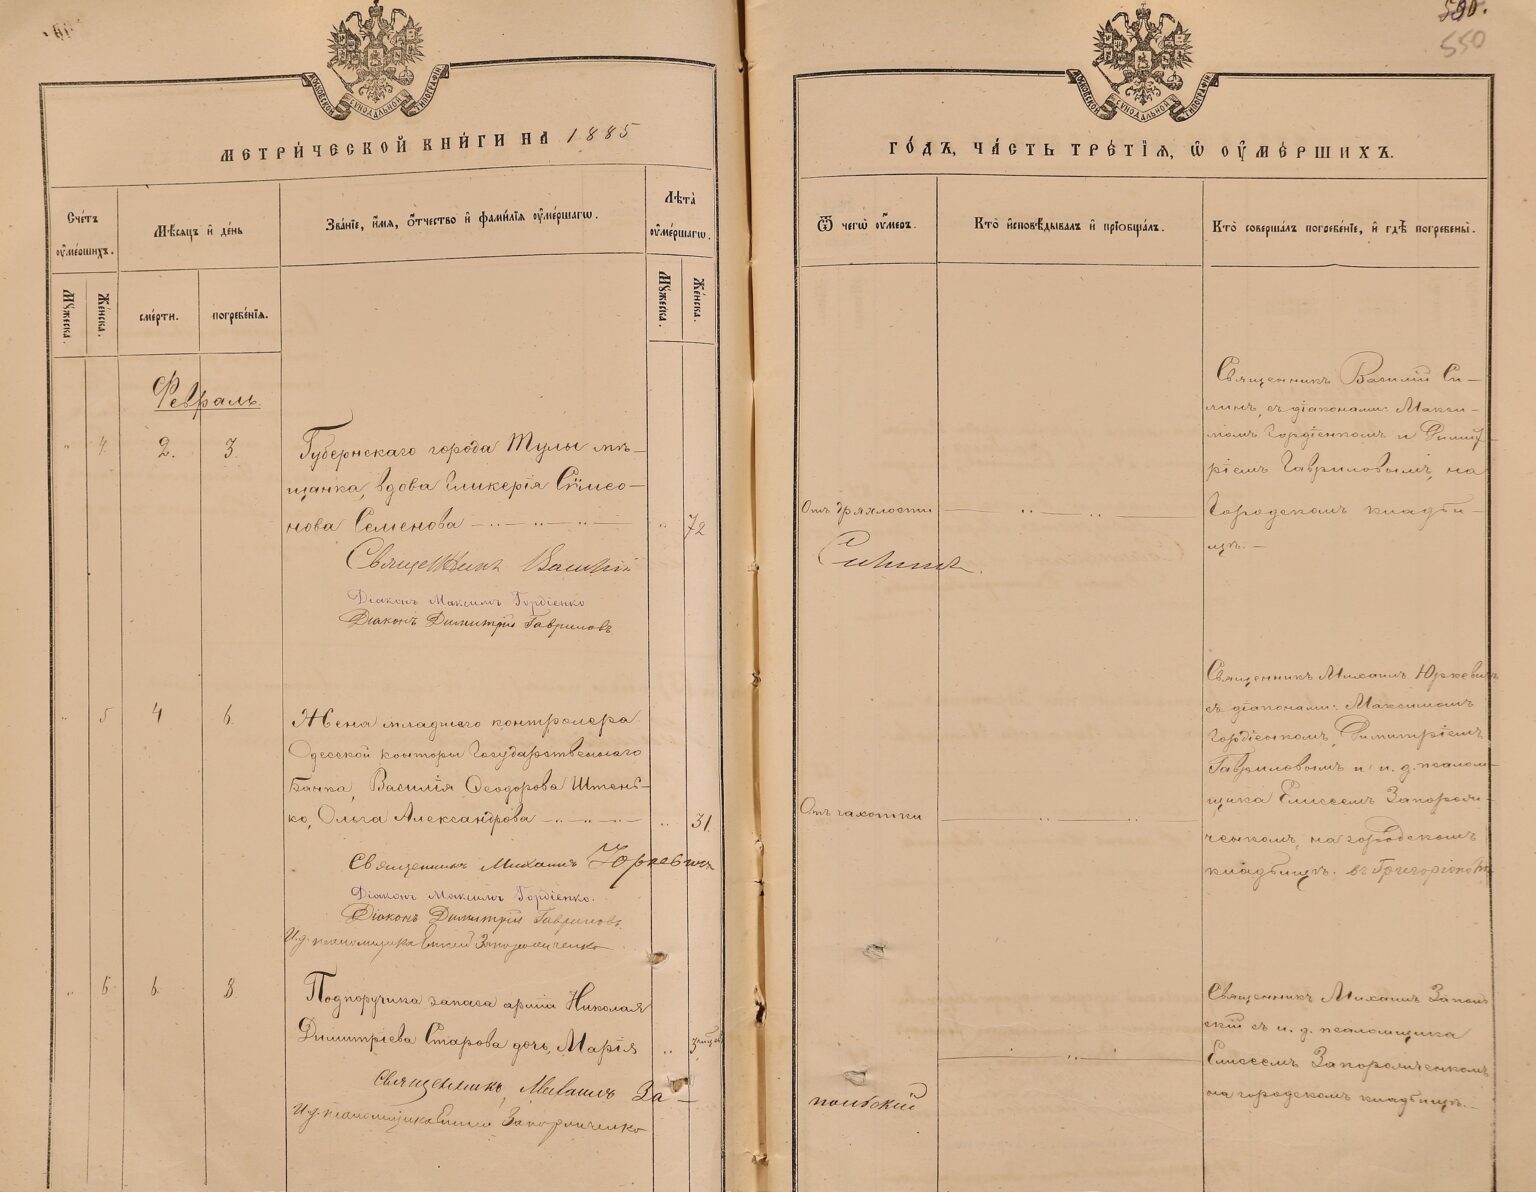 580.
550
МОСКОВСКОЙ СУНОДАЛЬНОЙ ТИПОГРАФІИ
МЕТРИ́ЧЕСКОЙ КНИ́ГИ НА 1885
Сче́тъ ᲂу҆ме́ршихъ.
Мѣ́сяцъ и҆ де́нь
Зва́нїе, и҆́мя, ѻ҆́тчество и҆ фамі́лїя ᲂу҆ме́ршагѡ.
Лѣ́та ᲂу҆ме́ршагѡ.
Мꙋ́жеска.
Же́нска.
сме́рти.
погребе́нїя.
Мꙋ́жеска.
Же́нска.
Февраль.
" 4. 2. 3. Губернскаго города Тулы мѣ–
щанка, вдова Гликерія Сѵмео–
нова Семенова " 72
Священникъ Василій
Діаконъ Максимъ Гордіенко
Діаконъ Димитрій Гавриловъ
" 5 4 6. Жена младшаго контролера
Одесской конторы Государственнаго
Банка, Василія Ѳеодорова Штень–
ко, Ольга Александрова " 31.
Священникъ Михаилъ Юркевичъ
Діаконъ Максимъ Гордіенко.
Діаконъ Димитрій Гавриловъ
И. д. псаломщика Елисей Запорожченко
" 6 6. 8. Подпоручика запаса арміи Николая
Димитріева Старова дочь, Марія " 3
Священникъ Михаилъ За–
И. д. псаломщика Елисей Запорожченко
МОСКОВСКОЙ СУНОДАЛЬНОЙ ТИПОГРАФІИ
ГО́ДЪ, ЧА́СТЬ ТРЕ́ТІѦ, Ѡ҆ ОУ҆МЕ́РШИХЪ.
Ѿ чегѡ̀ ᲂу҆́меръ.
Кто̀ и҆сповѣ́дывалъ и҆ прїобща́лъ.
Кто̀ соверша́лъ погребе́нїе, и҆ гдѣ̀ погребены̀.
Отъ дряхлости
Силинъ.
Священникъ Василій Си–
линъ, съ діаконами: Макси–
момъ Гордіенкомъ и Димит–
ріемъ Гавриловымъ, на
Городскомъ кладби–
щѣ.–
Отъ чахотки
Священникъ Михаилъ Юркевичъ
съ діаконами: Максимомъ
Гордіенкомъ, Димитріемъ
Гавриловымъ и и. д. псалом–
щика Елисеемъ Запорож–
ченкомъ, на городскомъ
кладбищѣ.
польскій
Священникъ Михаилъ Заполь
скій съ и. д. псаломщика
Елисеемъ Запорожченкомъ
на городскомъ кладбищѣ.–